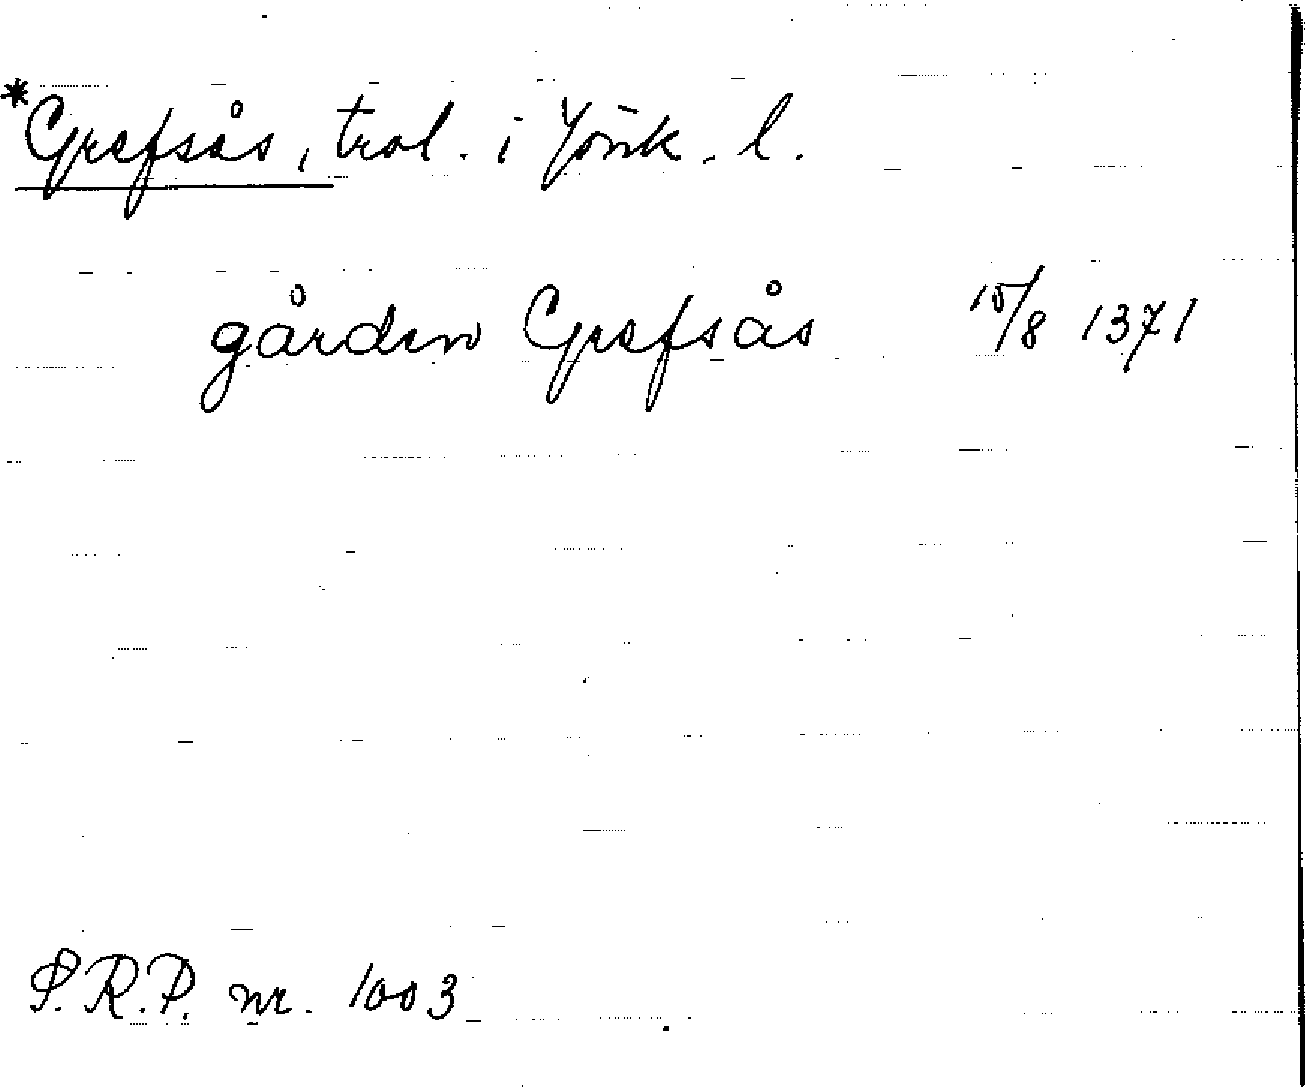 *Grefsås, trol. i Jönk. l.
gården Grefsås 15/8 1371
S.R.P. nr. 1003